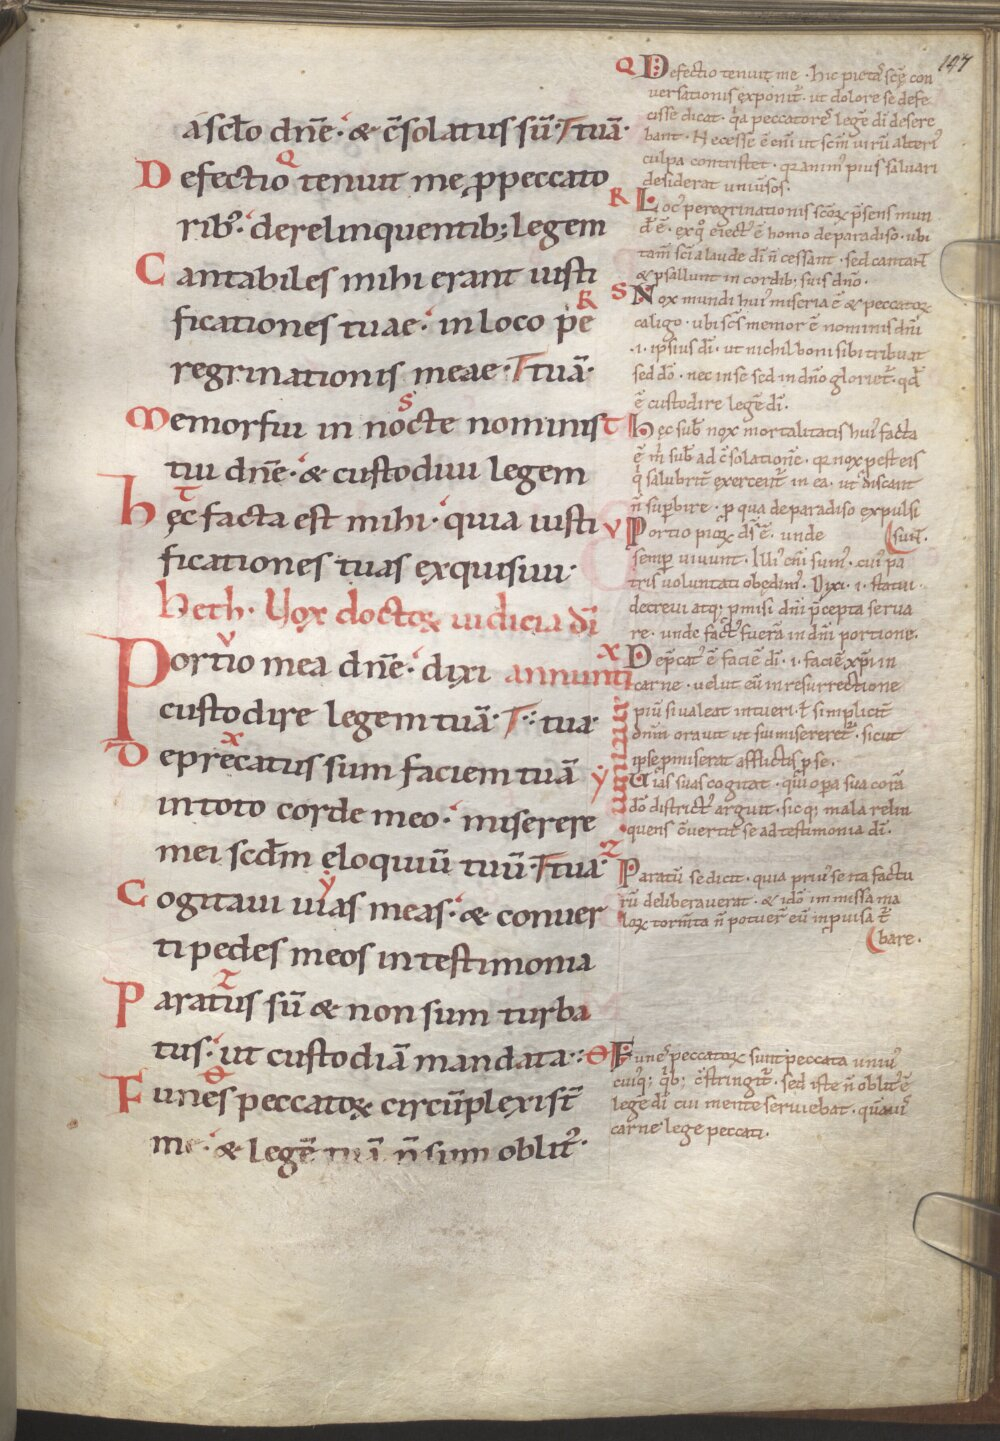 147
a sclo dnē· & c̄solatus sū·T tuā·
Defectio tenuit me ꝓ peccato
rib᷒· derelinquentib; legem
Cantabiles mihi erant iusti
ficationes tuae· in loco pe
regrinationis meae·T tuā·
Memor fui in nocte nominis
tui dnē· & custodiui legem
hęc facta est mihi· quia iusti
ficationes tuas exquisiui·
heth· Uox doctoꝝ iudicia dī
annunti
antium.
Portio mea dnē· dixi
custodire legem tuā·T·: tua·
Deprecatus sum faciem tuā
in toto corde meo· miserere
mei scdm̄ eloquiū tuū·T tua·
Cogitaui uias meas· & conuer
ti pedes meos in testimonia
Paratus sū & non sum turba
tus· ut custodiā mandata·:
Funes peccatoꝝ circūplexi st̄
me· & legē tuā n̄ sum oblit᷒·
Q Defectio tenuit me· hic pietas̄ scę con
uersationis exponit̄· ut dolore se defe
cisse dicat· q̇a peccatores̄ legē dī desere
bant· Necesse ē enī ut scm̄ uirū alteri᷒
culpa contristet· qr anim᷒ pius saluari
desiderat uniūsos·
R Loc᷒ peregrinationis scoꝝ p̄sens mun
d᷒ ē· ex quo eiect᷒ ē homo de paradiso· ubi
tam̄ scī a laude dī n̄ cessant· sed cantant̄
& psallunt in cordib; suis dno·
S Nox mundi hui᷒ miseria ē & peccatoꝝ
caligo· ubi scs̄ memor ē nominis dnī
·i· ipsius dī· ut nichil boni sibi tribuat
sed dō· nec in se sed in dn̄o gloriet̄· qd̄
ē custodire legē dī·
T hęc sub nox mortalitatis hui᷒ facta
ē m̄ sub ad c̄solationē· qr nox pest eis
q̇ salubrit̄ exercent̄ in ea· ut discant
n̄ supbire· p qua de paradiso expulsi
(sunt̄·
V Portio pioꝝ ds̄ ē· unde
semp uiuunt· Illi᷒ enī sum᷒· cui᷒ pa
tris uoluntati obędim᷒· Dixi·i· statui·
decreui atq; pmisi dnī p̄cepta serua
re· unde fact᷒ fuerā in dnī portione·
X Dep̄cat᷒ ē faciē dī·i· faciē xp̄i in
carne· uelut eū in resurrectione
piū si ualeat intueri· ł simplicit̄
dnm̄ orauit ut sui misereret̄· sicut
ipse pmiserat afflictis p se·
Y Uias suas cogitat· qui opa sua corā
dō district᷒ arguit· sicq; mala relin
quens c̄uertit se ad testimonia dī·
Z Paratū se dicit· quia pri᷒ se ita factu
rū deliberauerat· & idō immissa ma
loꝝ torm̄ta n̄ potuer̄ eū inpuisa t̄
(bare·
Θ Funes᷒ peccatoꝝ sunt peccata uni᷒
cui᷒q; q̇b; c̄stringit̄· sed iste n̄ oblit᷒ ē
legē dī cui mente seruiebat· quāuis̄
carne lege peccati·